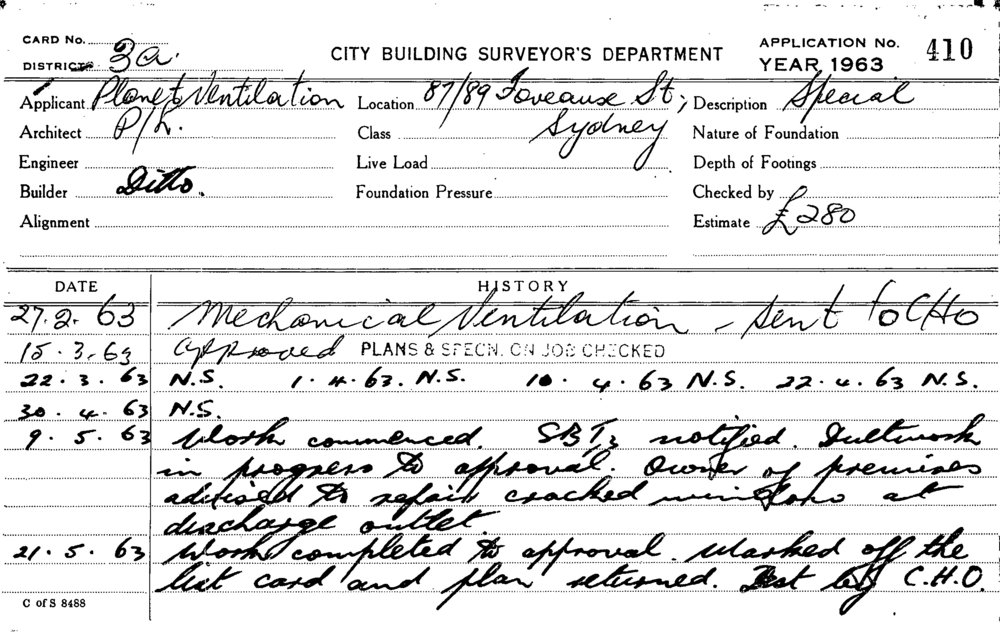 CARD No.
DISTRICT 3a.
CITY BUILDING SURVEYOR'S DEPARTMENT
APPLICATION No. 410
YEAR 1963
Applicant Planet Ventilation Location 87/89 Foveaux St, Description Special
Architect P/L. Class Sydney Nature of Foundation
Engineer Live Load Depth of Footings
Builder Ditto. Foundation Pressure Checked by
Alignment Estimate £280
DATE HISTORY
27.2.63 Mechanical Ventilation - Sent to CHO
15.3.63 Approved PLANS & SPECN. ON JOB CHECKED
22.3.63 N.S. 1.4.63. N.S. 10.4.63 N.S. 22.4.63 N.S.
30.4.63 N.S.
9.5.63 Work commenced. notified. Ductwork
in progress to approval. Owner of premises
advised to repair cracked window at
discharge outlet.
21.5.63 Work completed to approval. Marked off the
list card and plan returned. Test by C.H.O.
C of S 8488